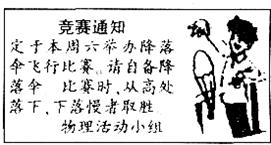 竞赛通知
定于本周六举办降落
伞飞行比赛。请自备降
落伞 比赛时,从高处
落下,下落慢者取胜.
物理活动小组